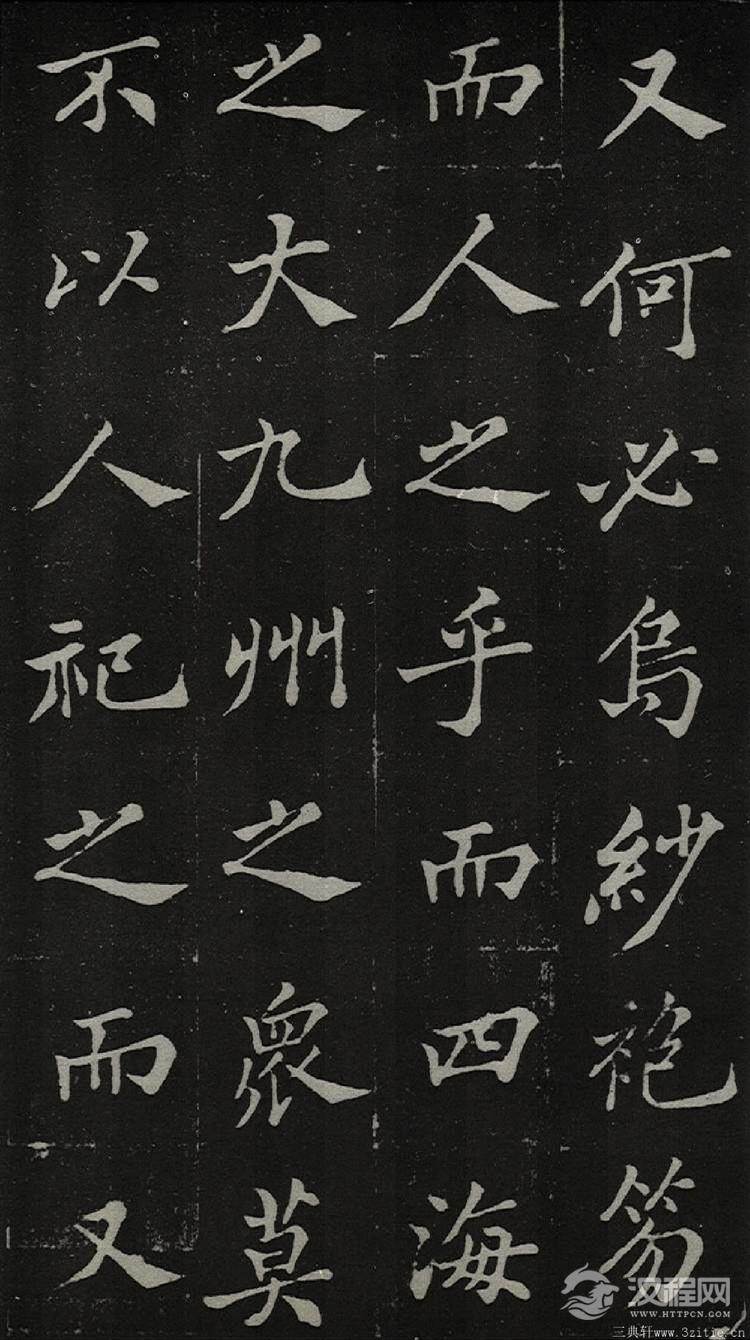 又何必烏紗袍笏
而人之乎而四海
之大九州之眾莫
不以人祀之而又
汉程网
WWW.HTTPCN.COM
三典轩www.3zitie.cn